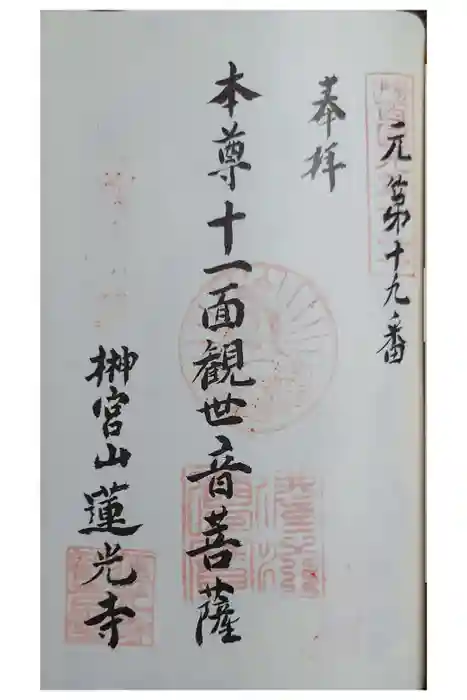 元第十九番
奉拝
本尊十一面観世音菩薩
榊宮山蓮光寺